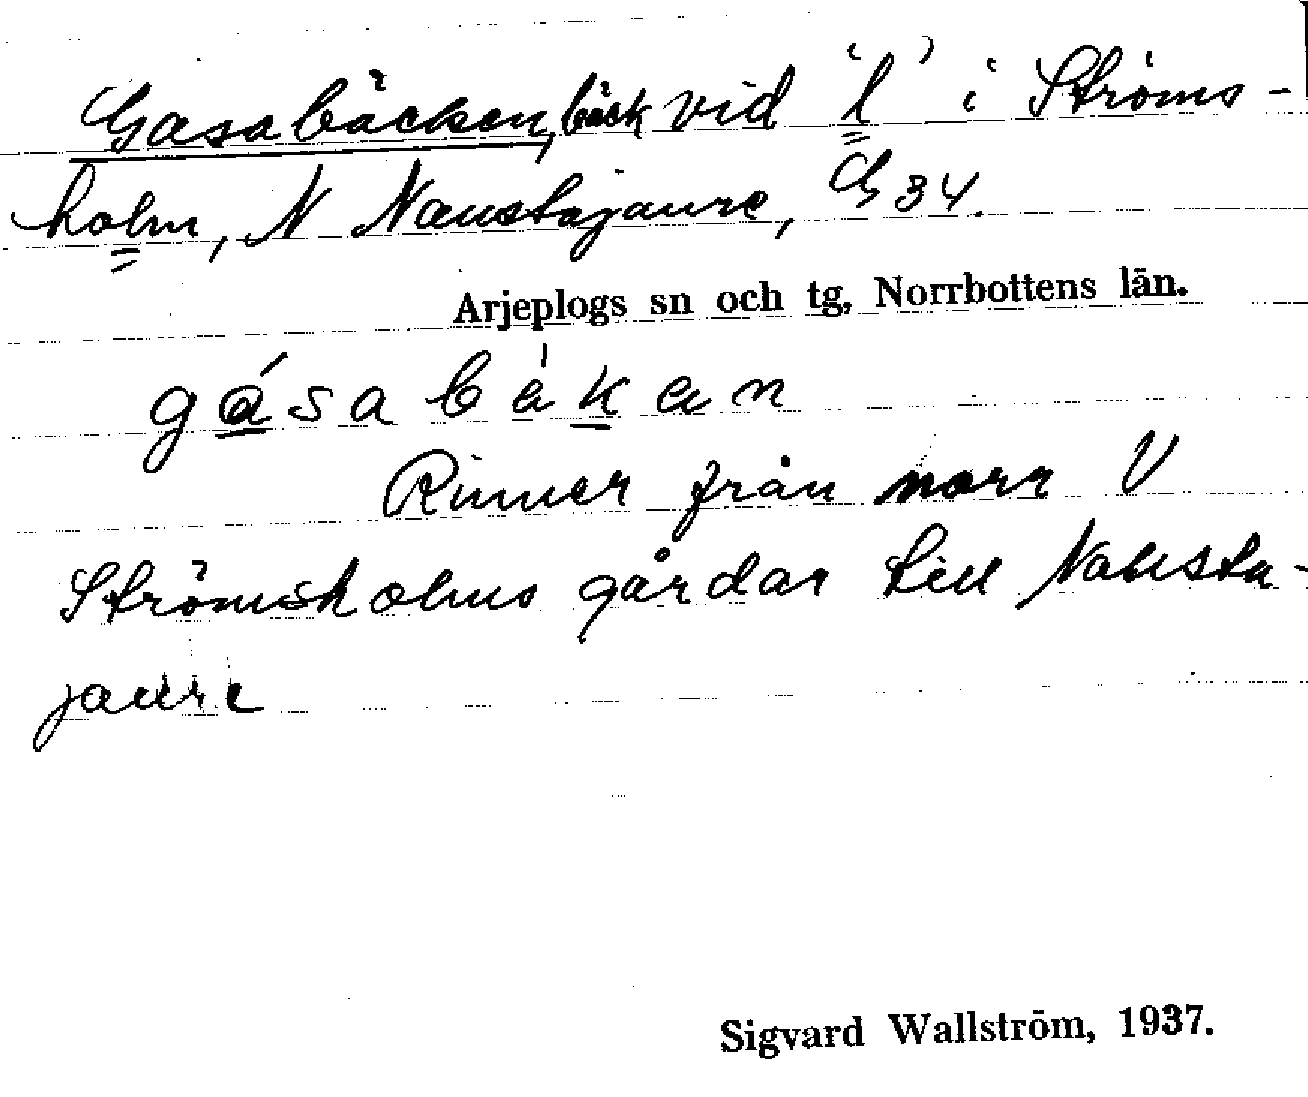 Gasabäcken, bäck vid 'l' i Ströms-
holm, N Naustajaure, G 34.
Arjeplogs sn och tg, Norrbottens län.
gásabäkan
Rinner från norr V
Strömsholms gårdar till Nausta-
jaure
Sigvard Wallström, 1937.